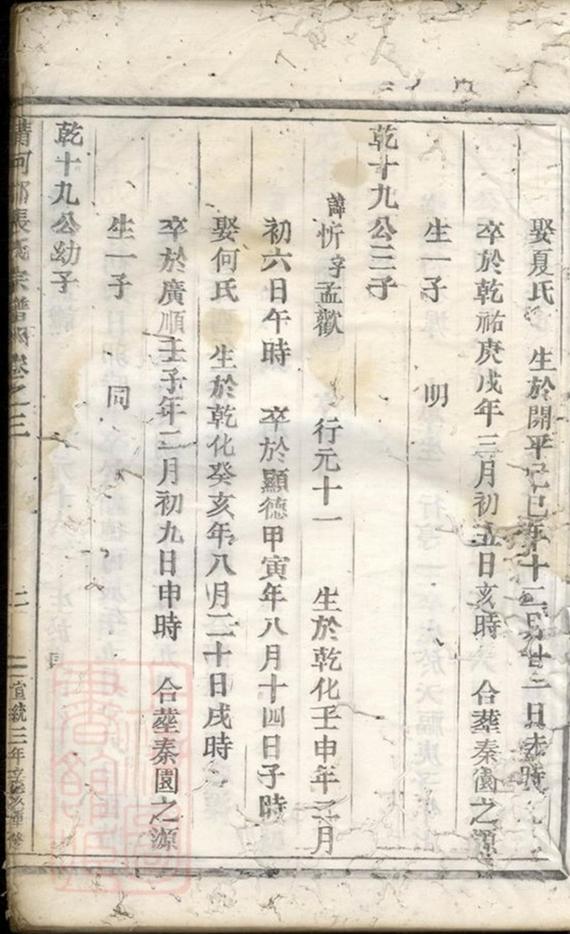 娶夏氏　生於開平己巳年十二月廿二日　時
卒於乾祐庚戌年三月初五日亥時　合塟秦園之源
生一子　明
乾十九公三子
諱忻字孟歡　行元十一　生於乾化壬申年　月
初六日午時　卒於顯德甲寅年八月十四日子時
娶何氏　生於乾化癸亥年八月二十日戌時
卒於廣順壬子年二月初九日申時　合塟秦園之源
生一子　同
乾十九公幼子
清河郡張氏宗譜　卷之三　二　宣統三年辛亥重修